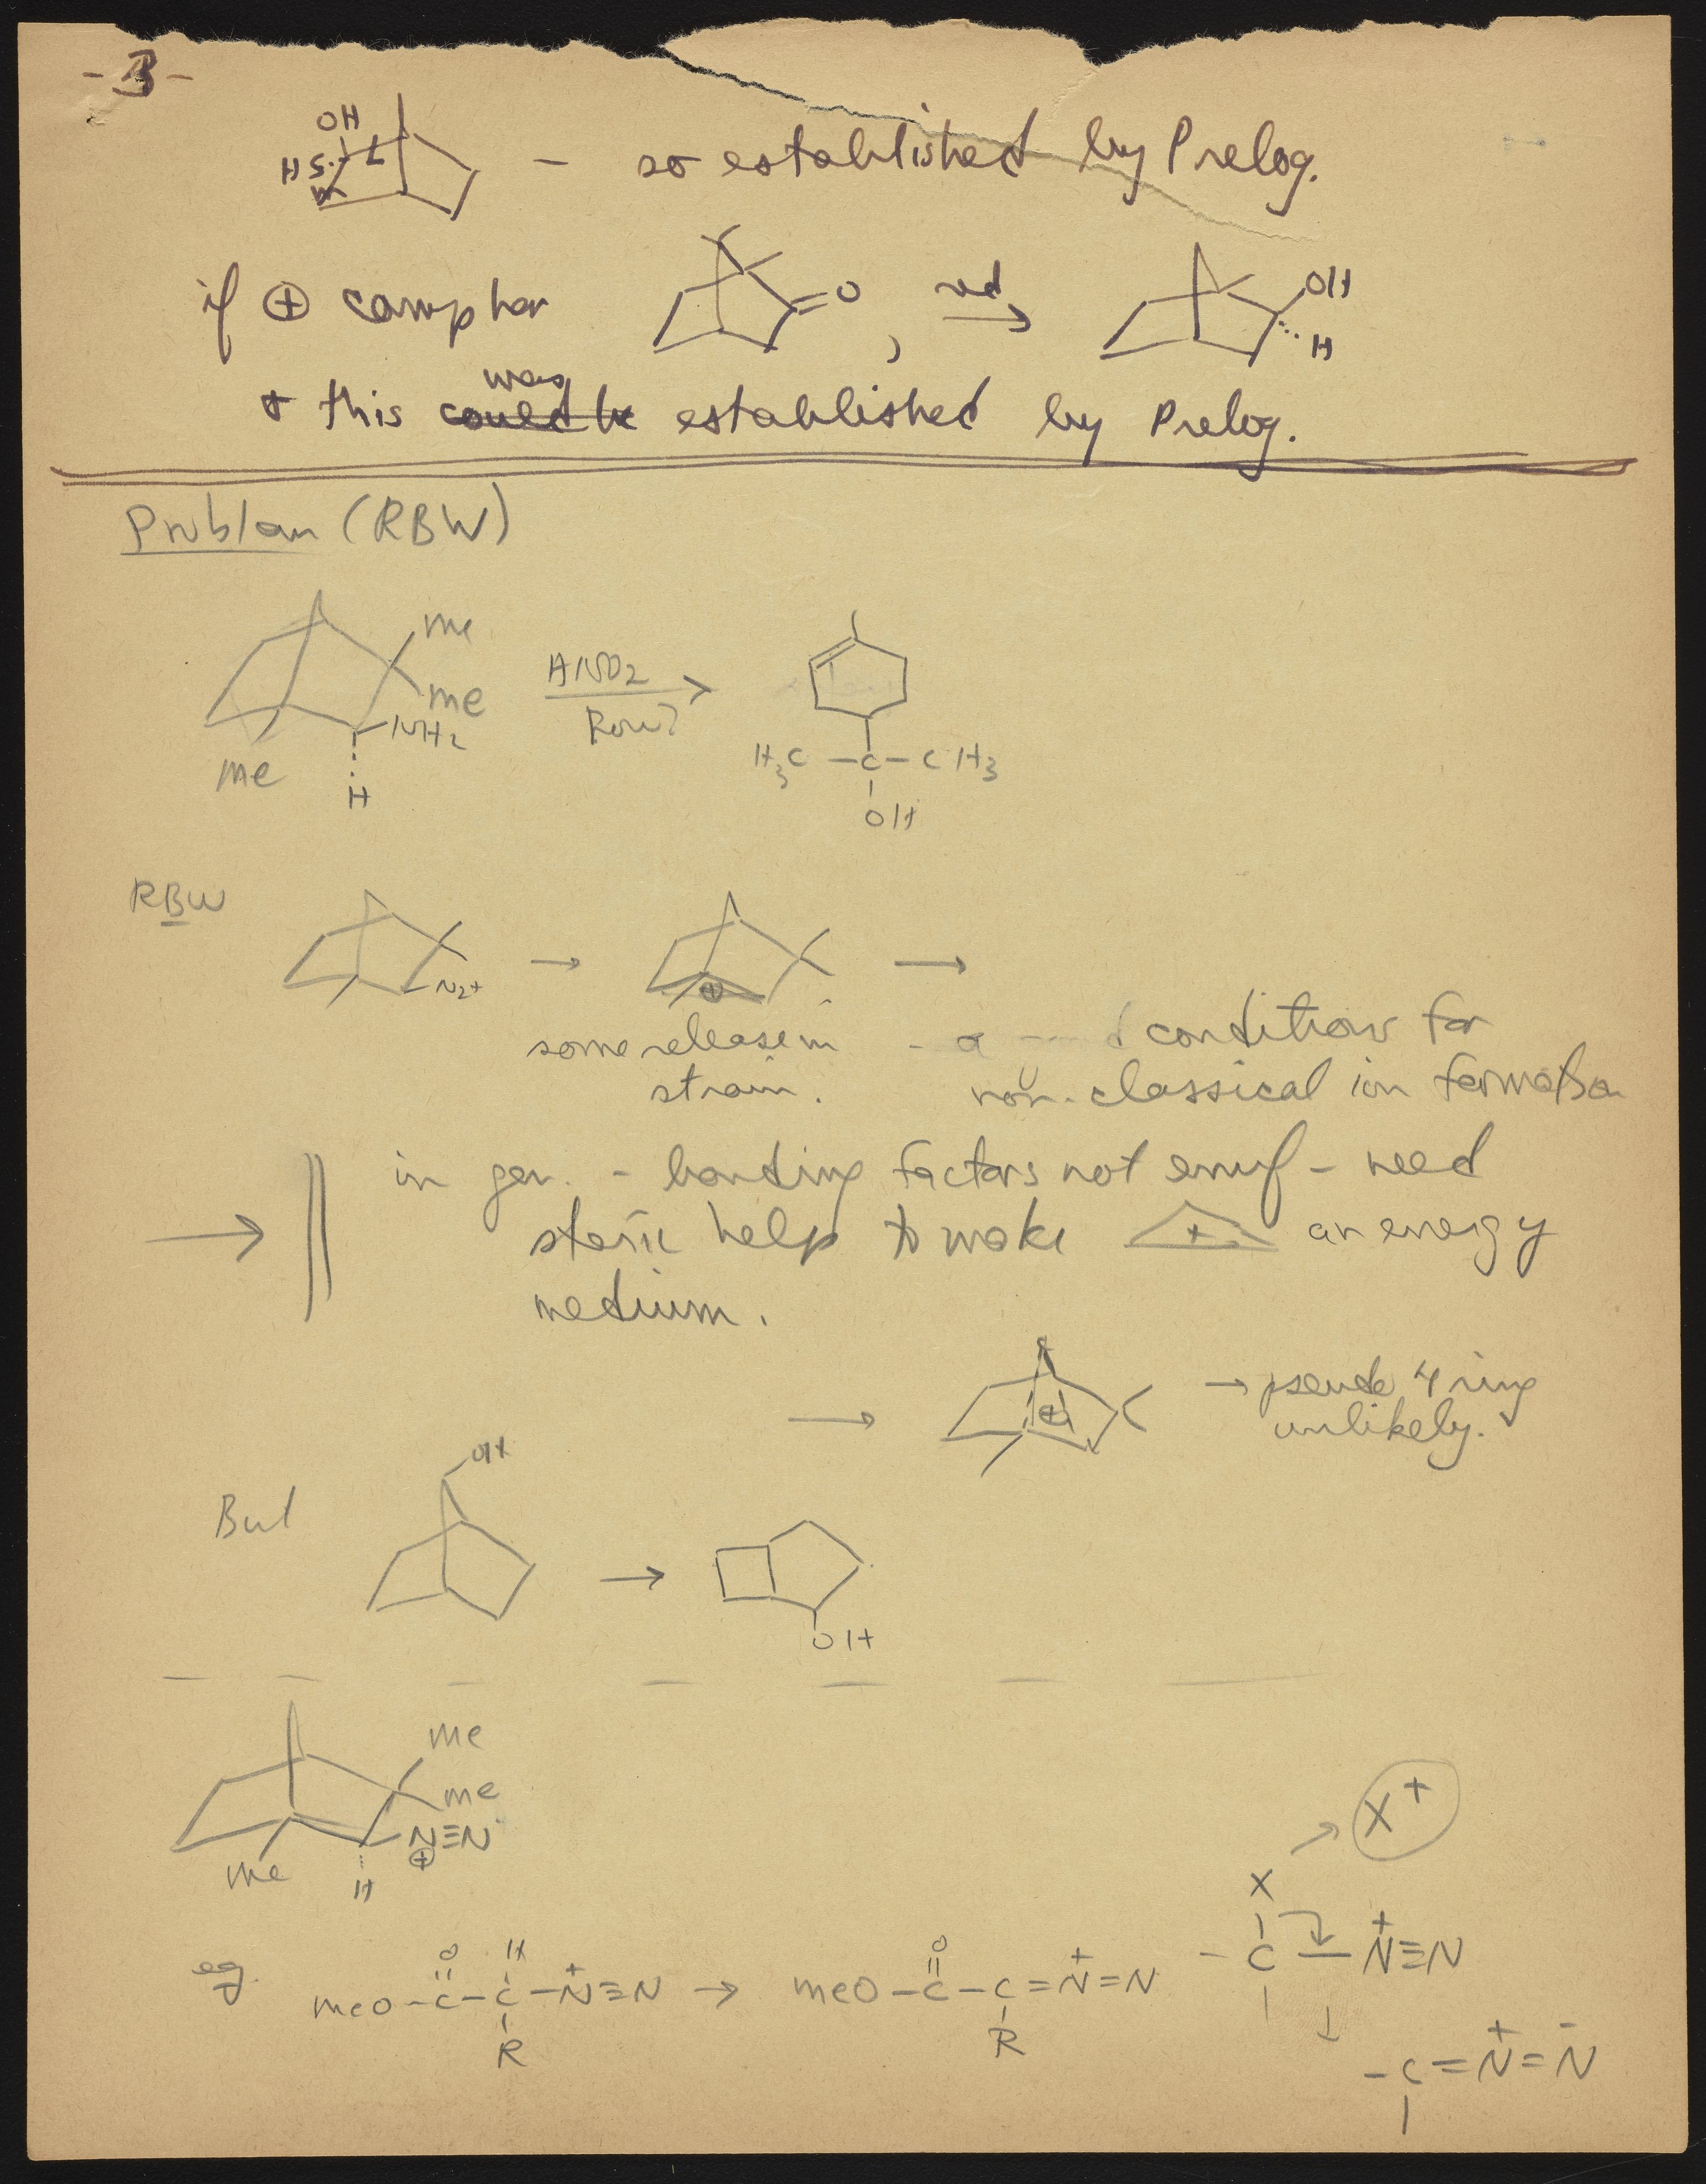 -3-
OH
H S L
M
- so established by Prelog.
if ⊕ camphor O , red → OH
H
was
+ this could be established by Prelog.
Problem (RBW)
me
me
NH2
me
H
HNO2
How?
H3C - C - CH3
OH
RBW
N2+ → ⊕ →
some release in
strain.
conditions for
non-classical ion formation
in gen. - bonding factors not enuf - need
→ steric help to make + an energy
medium.
→ + → pseudo 4 ring
unlikely.
OH
But →
OH
me
me
N≡N
⊕
me
H
X+
X
- C - N+≡N
↓
- C = N+ = N-
eg. MeO - C - C - N+≡N → MeO - C - C = N+ = N
O H O
R R